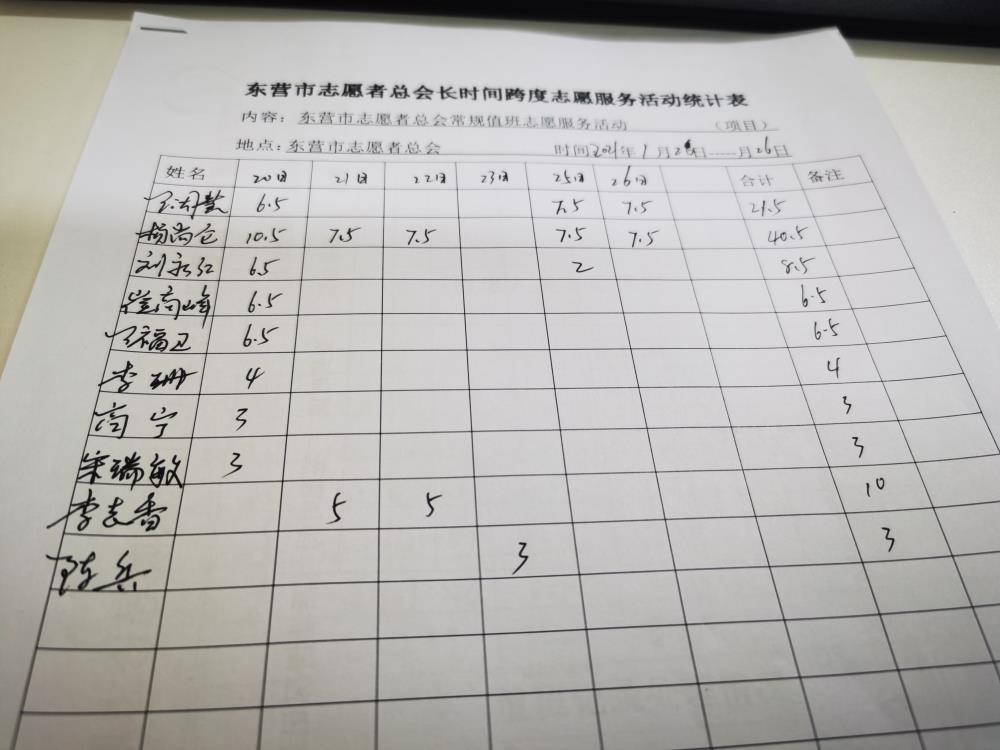 东营市志愿者总会长时间跨度志愿服务活动统计表
内容：东营市志愿者总会常规值班志愿服务活动 （项目）
地点：东营市志愿者总会 时间2021年1月20日-----月26日
姓名 20日 21日 22日 23日 25日 26日 合计 备注
6.5 7.5 7.5 21.5
杨尚仓 10.5 7.5 7.5 7.5 7.5 40.5
刘永红 6.5 2 8.5
崔高峰 6.5 6.5
王福卫 6.5 6.5
李珊 4 4
高宁 3 3
宋瑞敏 3 3
李志香 5 5 10
陈兵 3 3